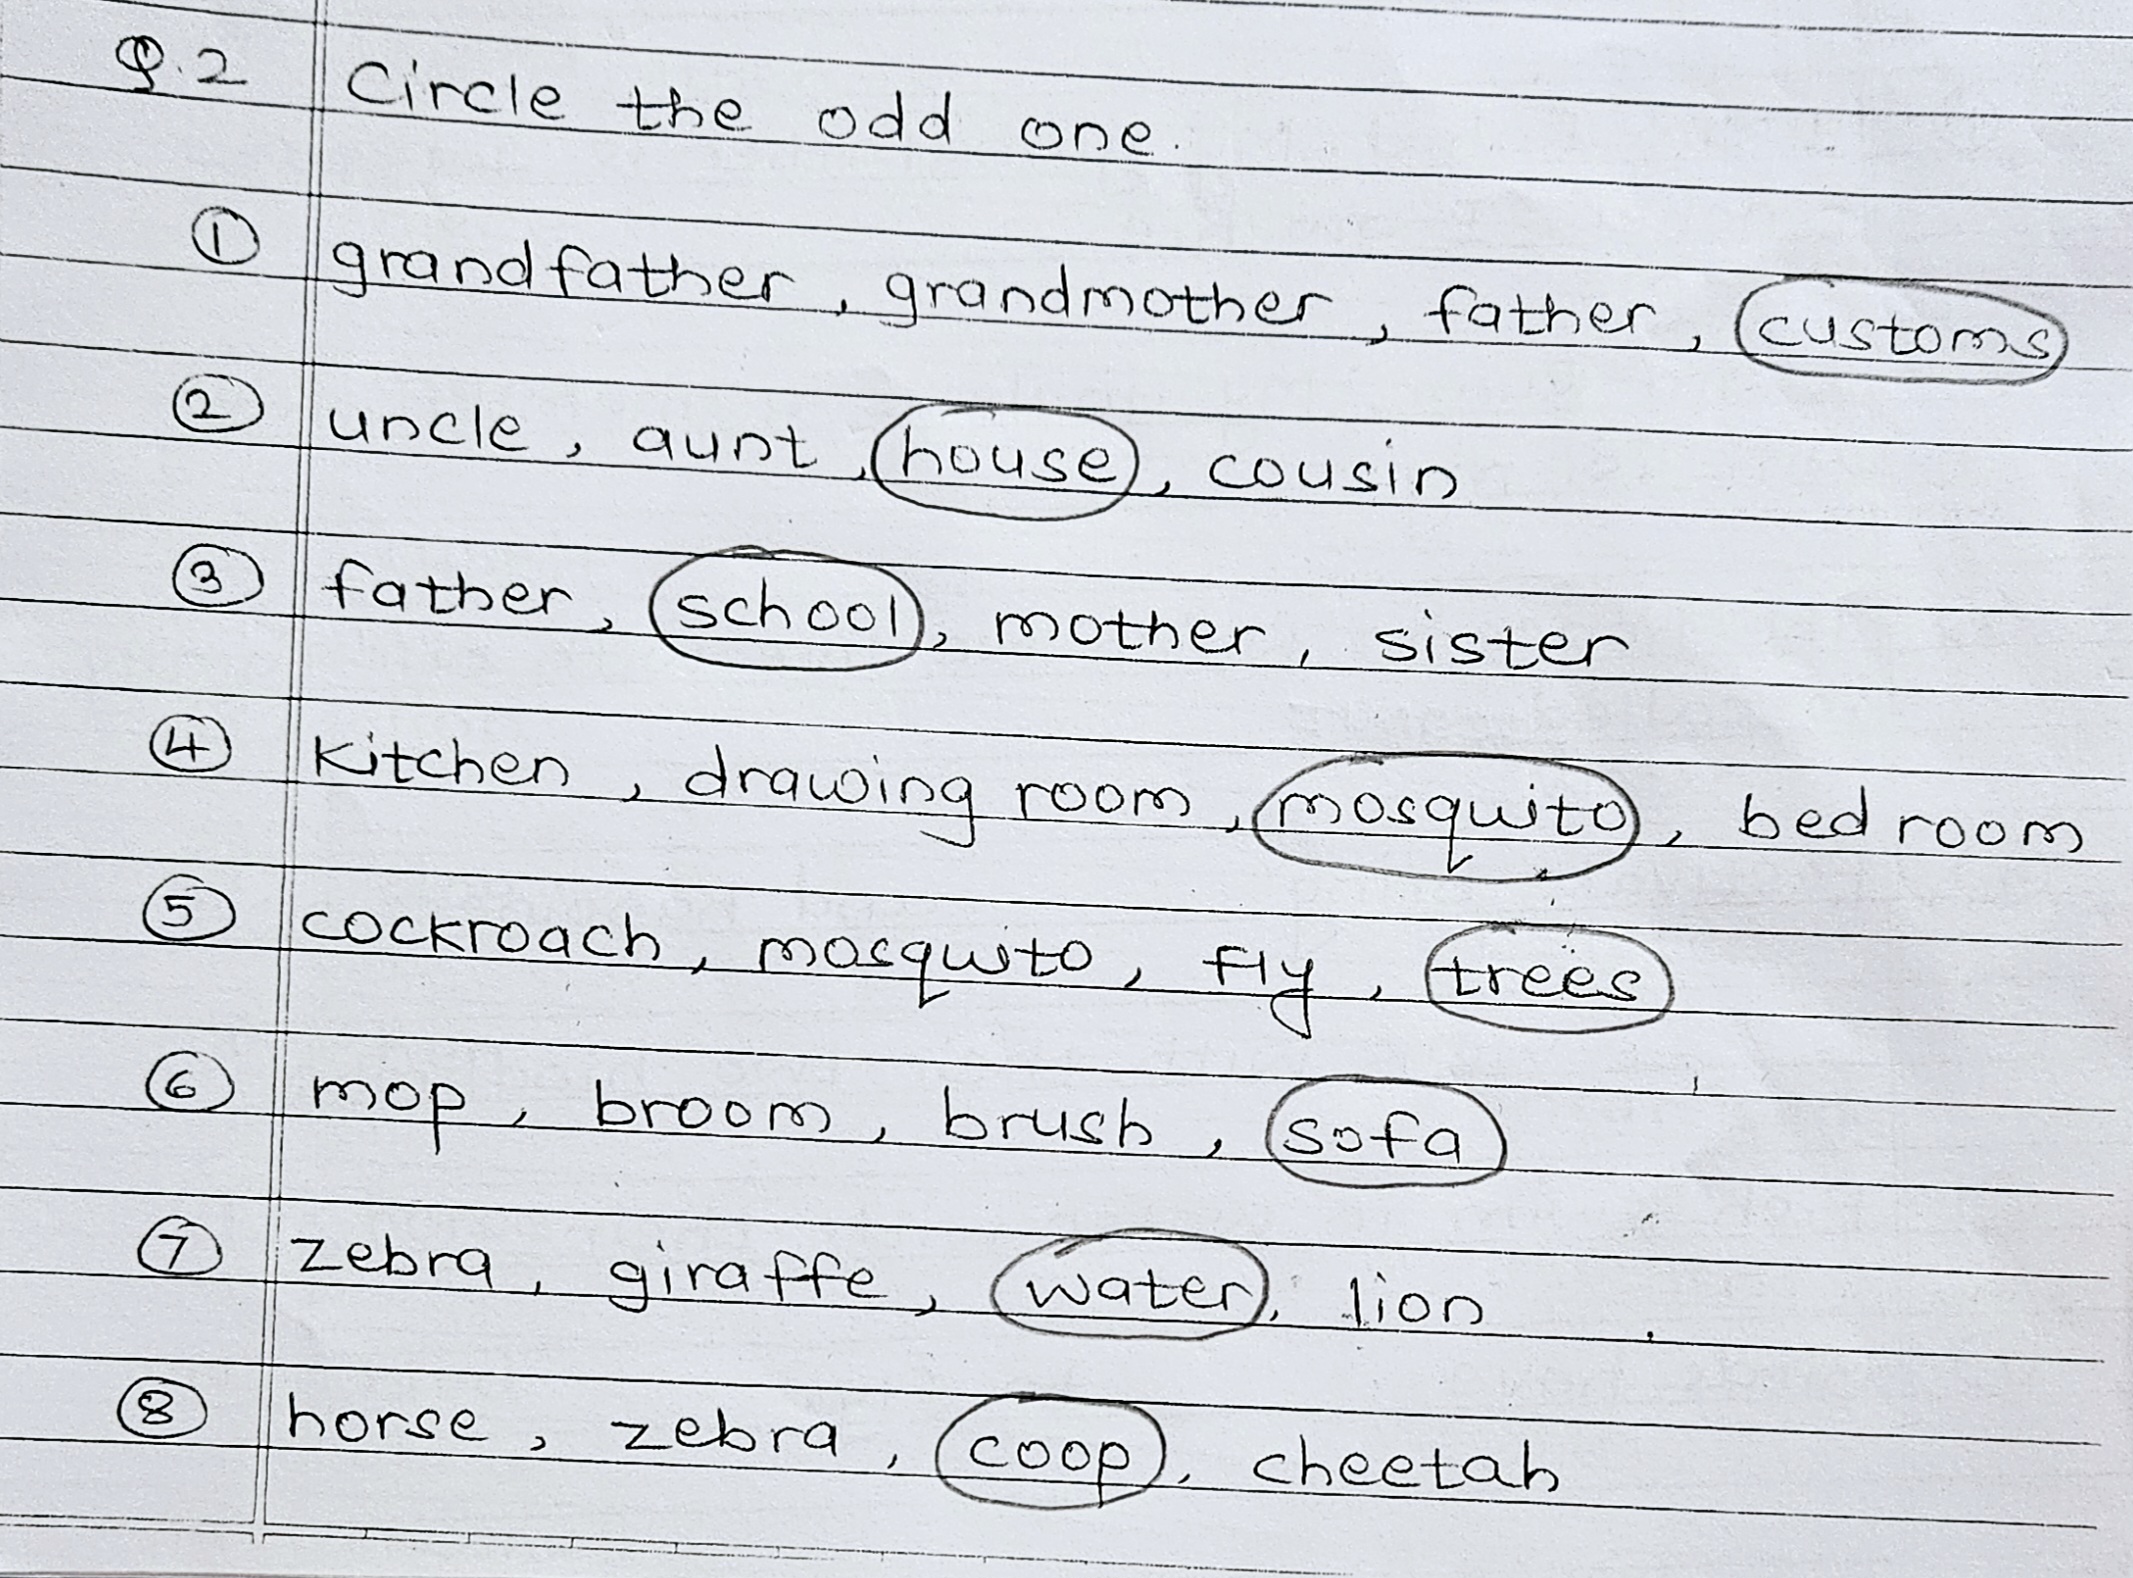 Q.2 Circle the odd one.
① grandfather, grandmother, father, customs
② uncle, aunt, house, cousin
③ father, school, mother, sister
④ kitchen, drawing room, mosquito, bed room
⑤ cockroach, mosquito, fly, trees
⑥ mop, broom, brush, sofa
⑦ zebra, giraffe, water, lion
⑧ horse, zebra, coop, cheetah